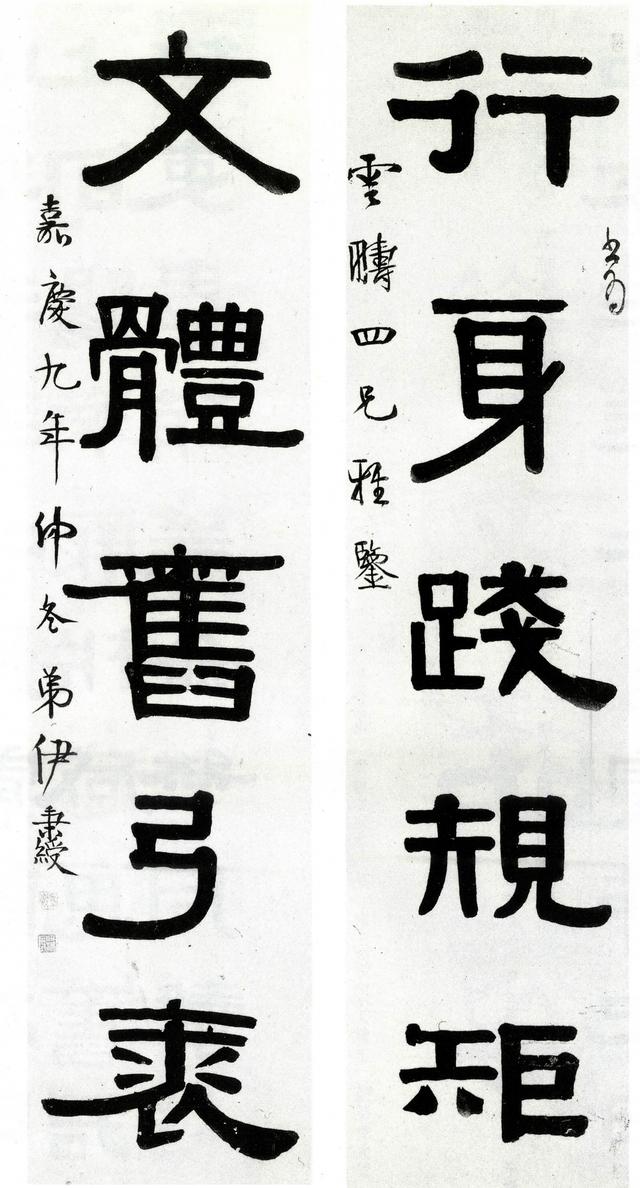 行身踐規矩
書為
雲疇四兄雅鑒
文體舊弓裘
嘉慶九年仲冬弟伊秉綬